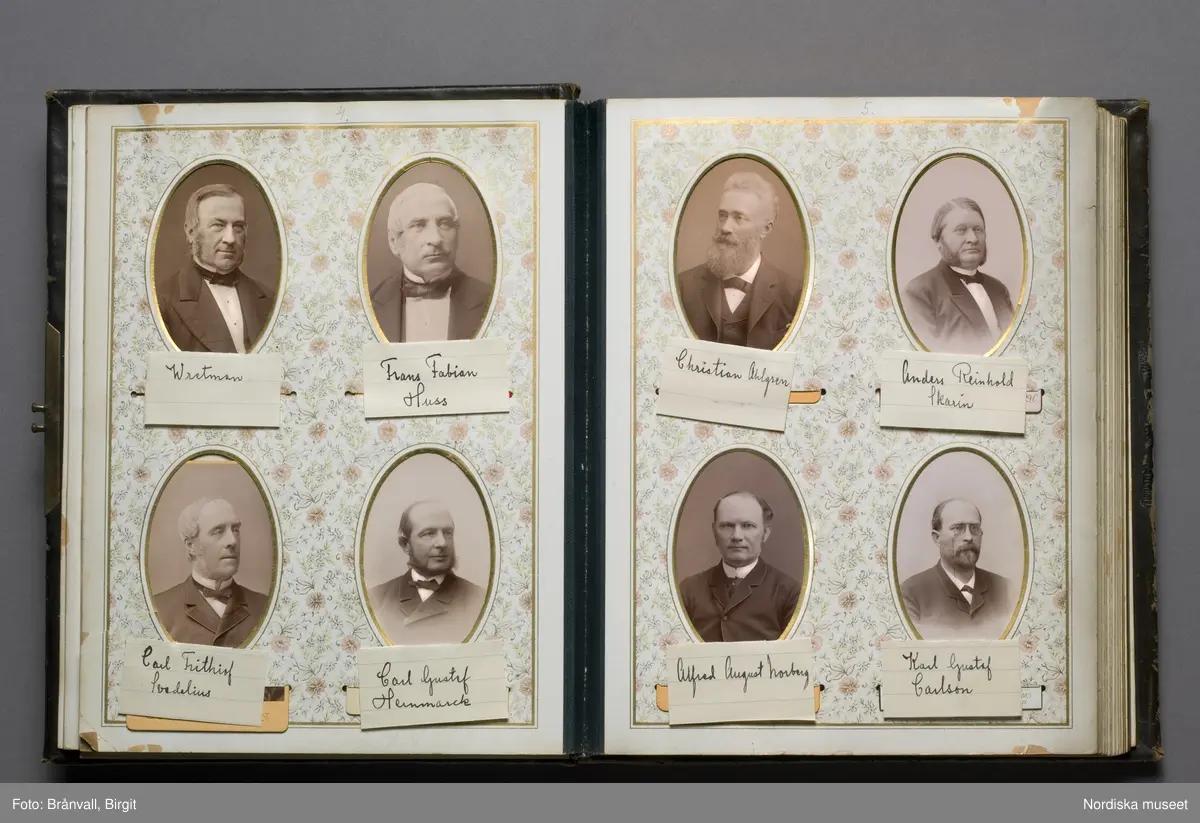 4.
5.
Wretman
Frans Fabian
Huss
Christian Ahlgren
Anders Reinhold
Skarin
90
Carl Frithiof
Svedelius
Carl Gustaf
Hernmarck
Alfred August Norberg
Karl Gustaf
Carlson
Foto: Brånvall, Birgit
Nordiska museet